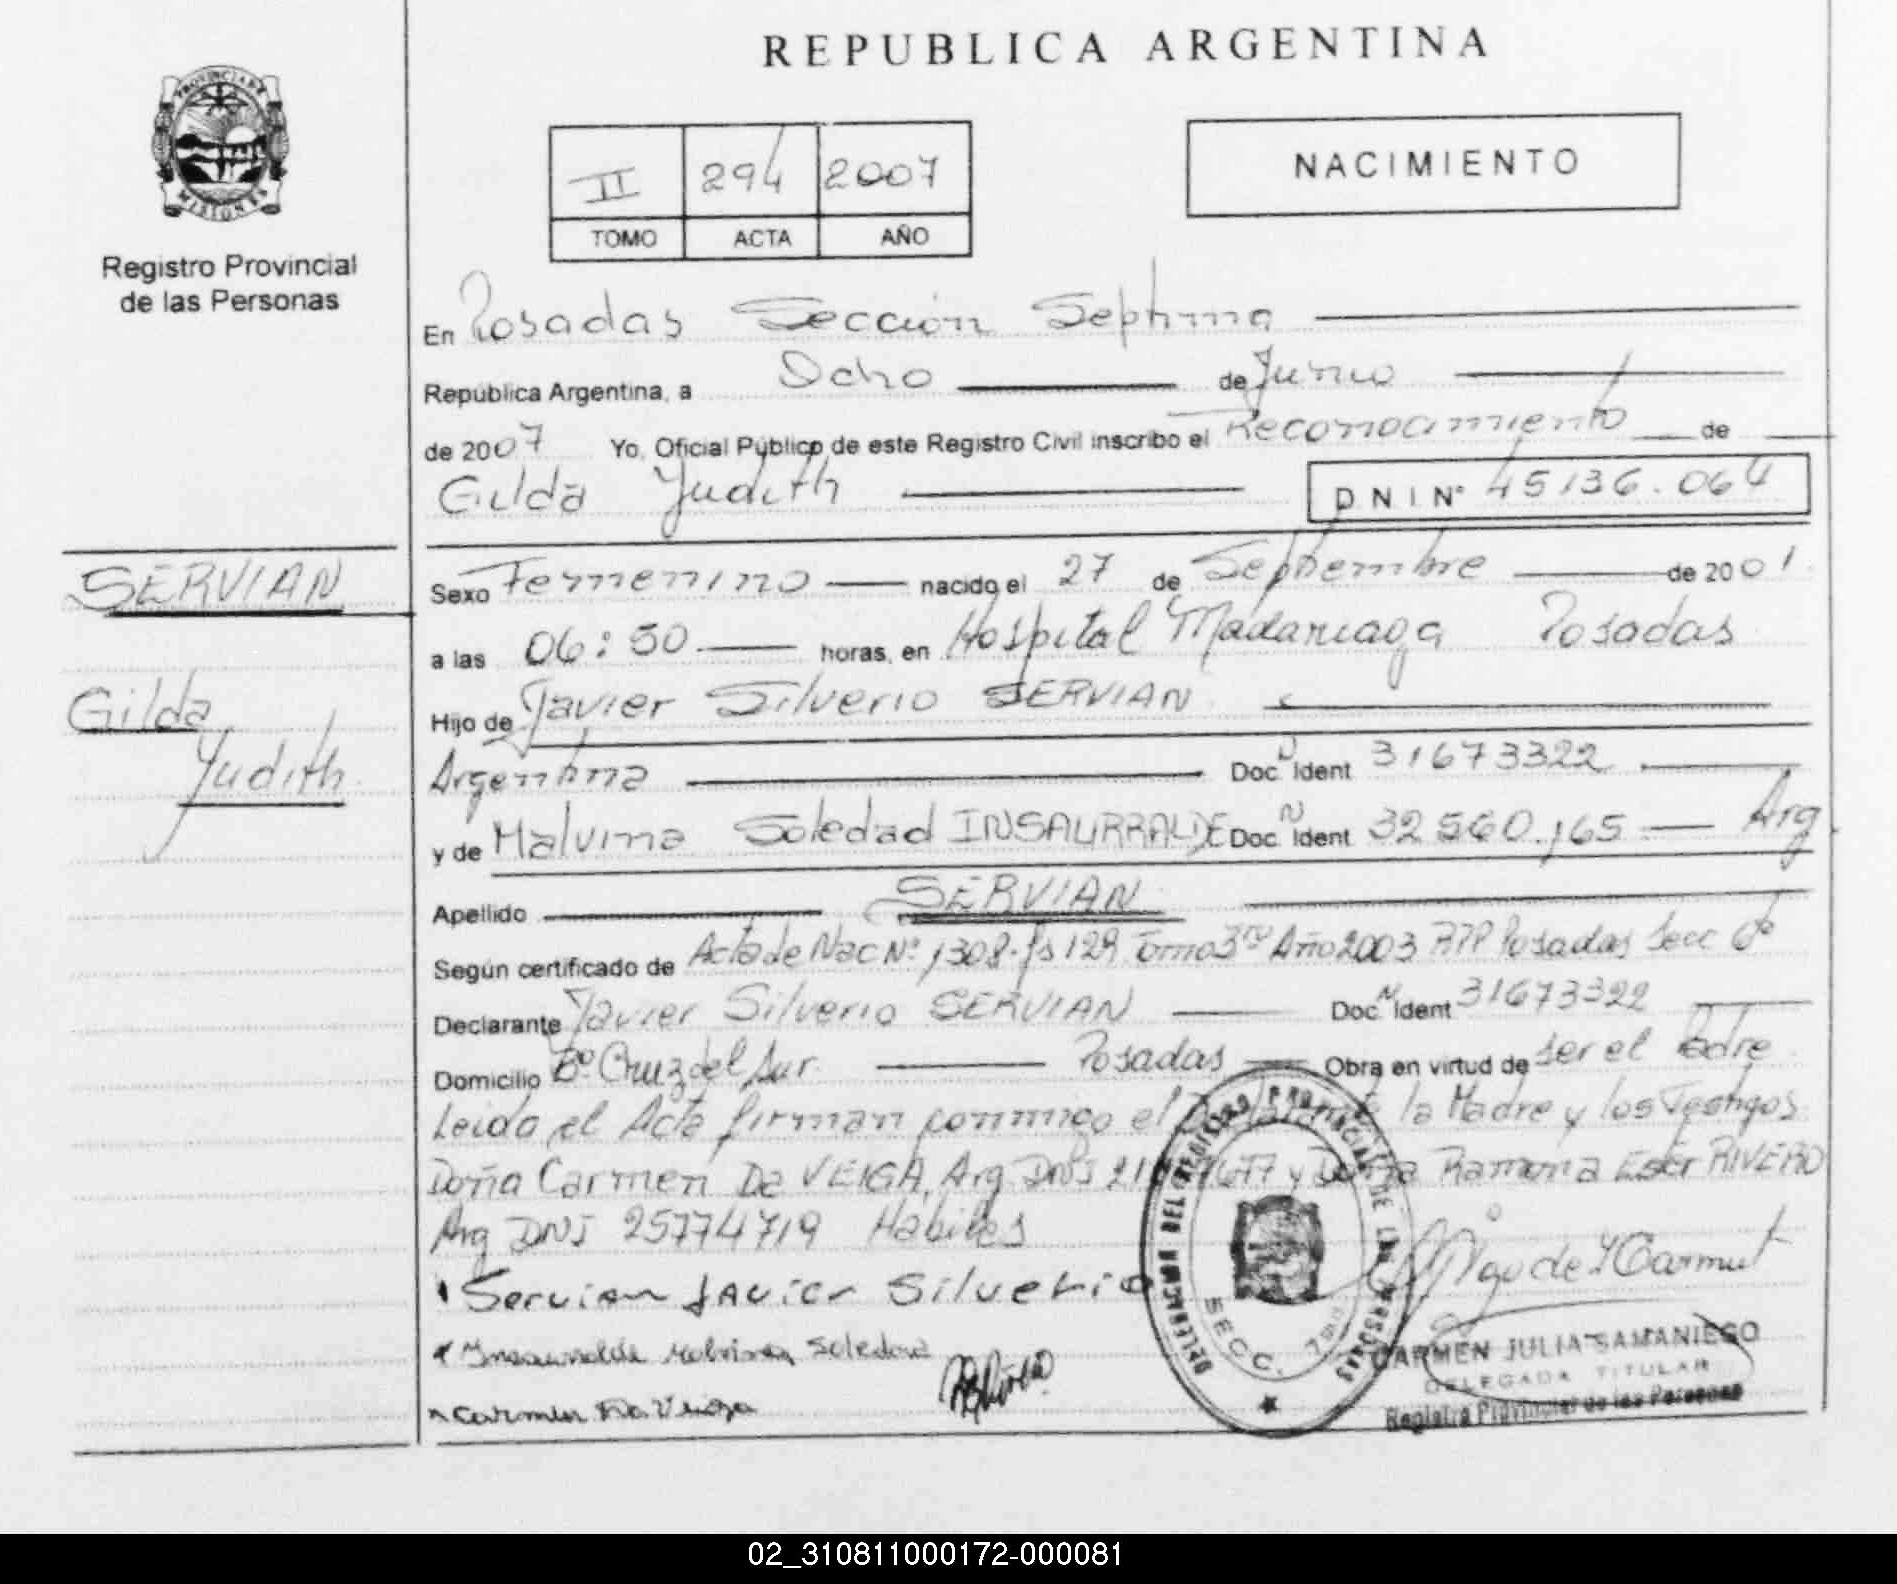 REPUBLICA ARGENTINA
PROVINCIA DE
MISIONES
Registro Provincial
de las Personas
II 294 2007
TOMO ACTA AÑO
NACIMIENTO
En Posadas Sección Septima
República Argentina, a Ocho de Junio
de 2007 Yo, Oficial Público de este Registro Civil inscribo el Reconocimiento de
Gilda Yudith
D N I Nº 45136.064
SERVIAN
Gilda
Yudith
Sexo Femenino nacido el 27 de Septiembre de 2001
a las 06:50 horas, en Hospital Madariaga Posadas
Hijo de Javier Silverio SERVIAN
Argentina Doc. N Ident 31673322
y de Malvina Soledad INSAURRALDE Doc. N Ident 32560.165 Arg.
Apellido SERVIAN
Según certificado de Acta de Nac Nº 1308 fs 129 Tomo 3ro Año 2003 RPP Posadas Secc 6ª
Declarante Javier Silverio SERVIAN Doc. N Ident 31673322
Domicilio Bº Cruz del Sur. Posadas Obra en virtud de ser el Padre
Leida el Acta firman conmigo el Declarante la Madre y los Testigos
Doña Carmen Da VEIGA Arg. DNI y Doña Ramona Ester RIVERO
Arg DNI 25774719 Habiles
Servian Javier Silverio
Insaurralde Malvina Soledad
Carmen Da Veiga
DELEGACION DEL REGISTRO PROVINCIAL DE LAS PERSONAS
SECC. 7ma
CARMEN JULIA SAMANIEGO
DELEGADA TITULAR
Registro Provincial de las Personas
02_310811000172-000081